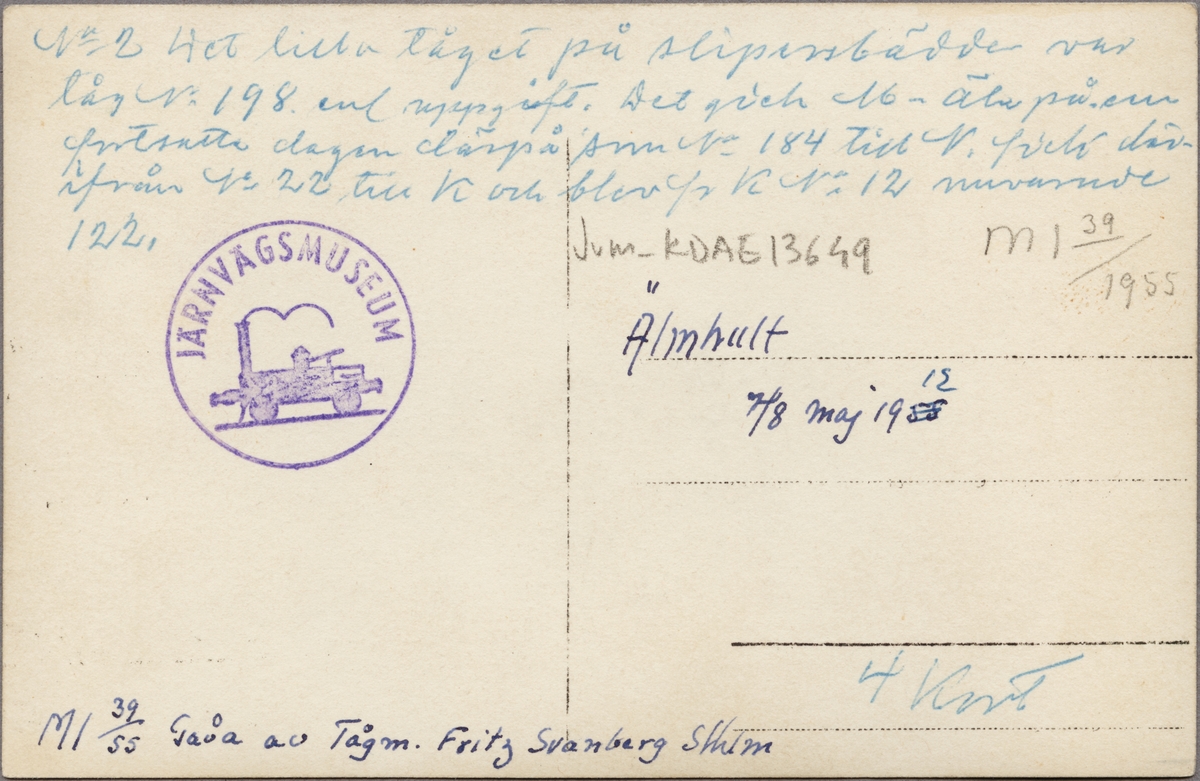 No 2 Det lilla tåget på slipersbädden var
tåg No 198 enl uppgift. Det gick M - Äh på em
fortsatte dagen därpå som No 184 till N. gick där-
ifrån No 22 till K och blev fr K No 12 nuvarande
122.
JÄRNVÄGSMUSEUM
Jvm-KDAE13649
M1 39/1955
Älmhult
7/8 maj 1955 12
4 Kort
M1 39/55 Gåva av Tågm. Fritz Svanberg Sthlm